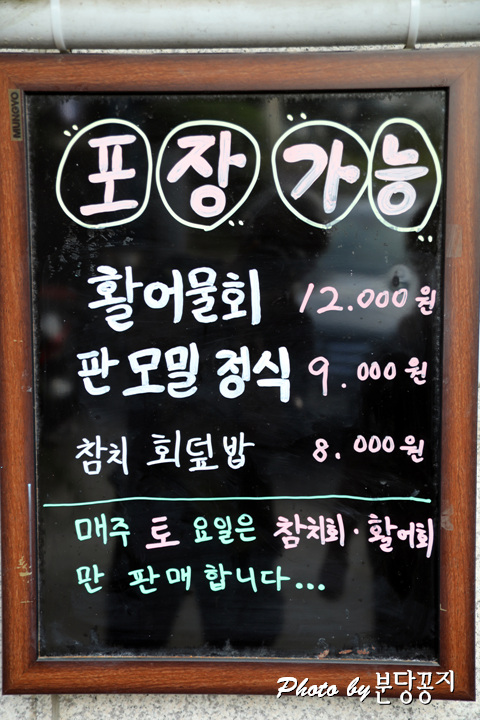 MUNGYO
포장 가능
활어물회 12.000원
판모밀 정식 9.000원
참치 회덮밥 8.000원
매주 토 요일은 참치회·활어회
만 판매합니다...
Photo by 분당꽁지